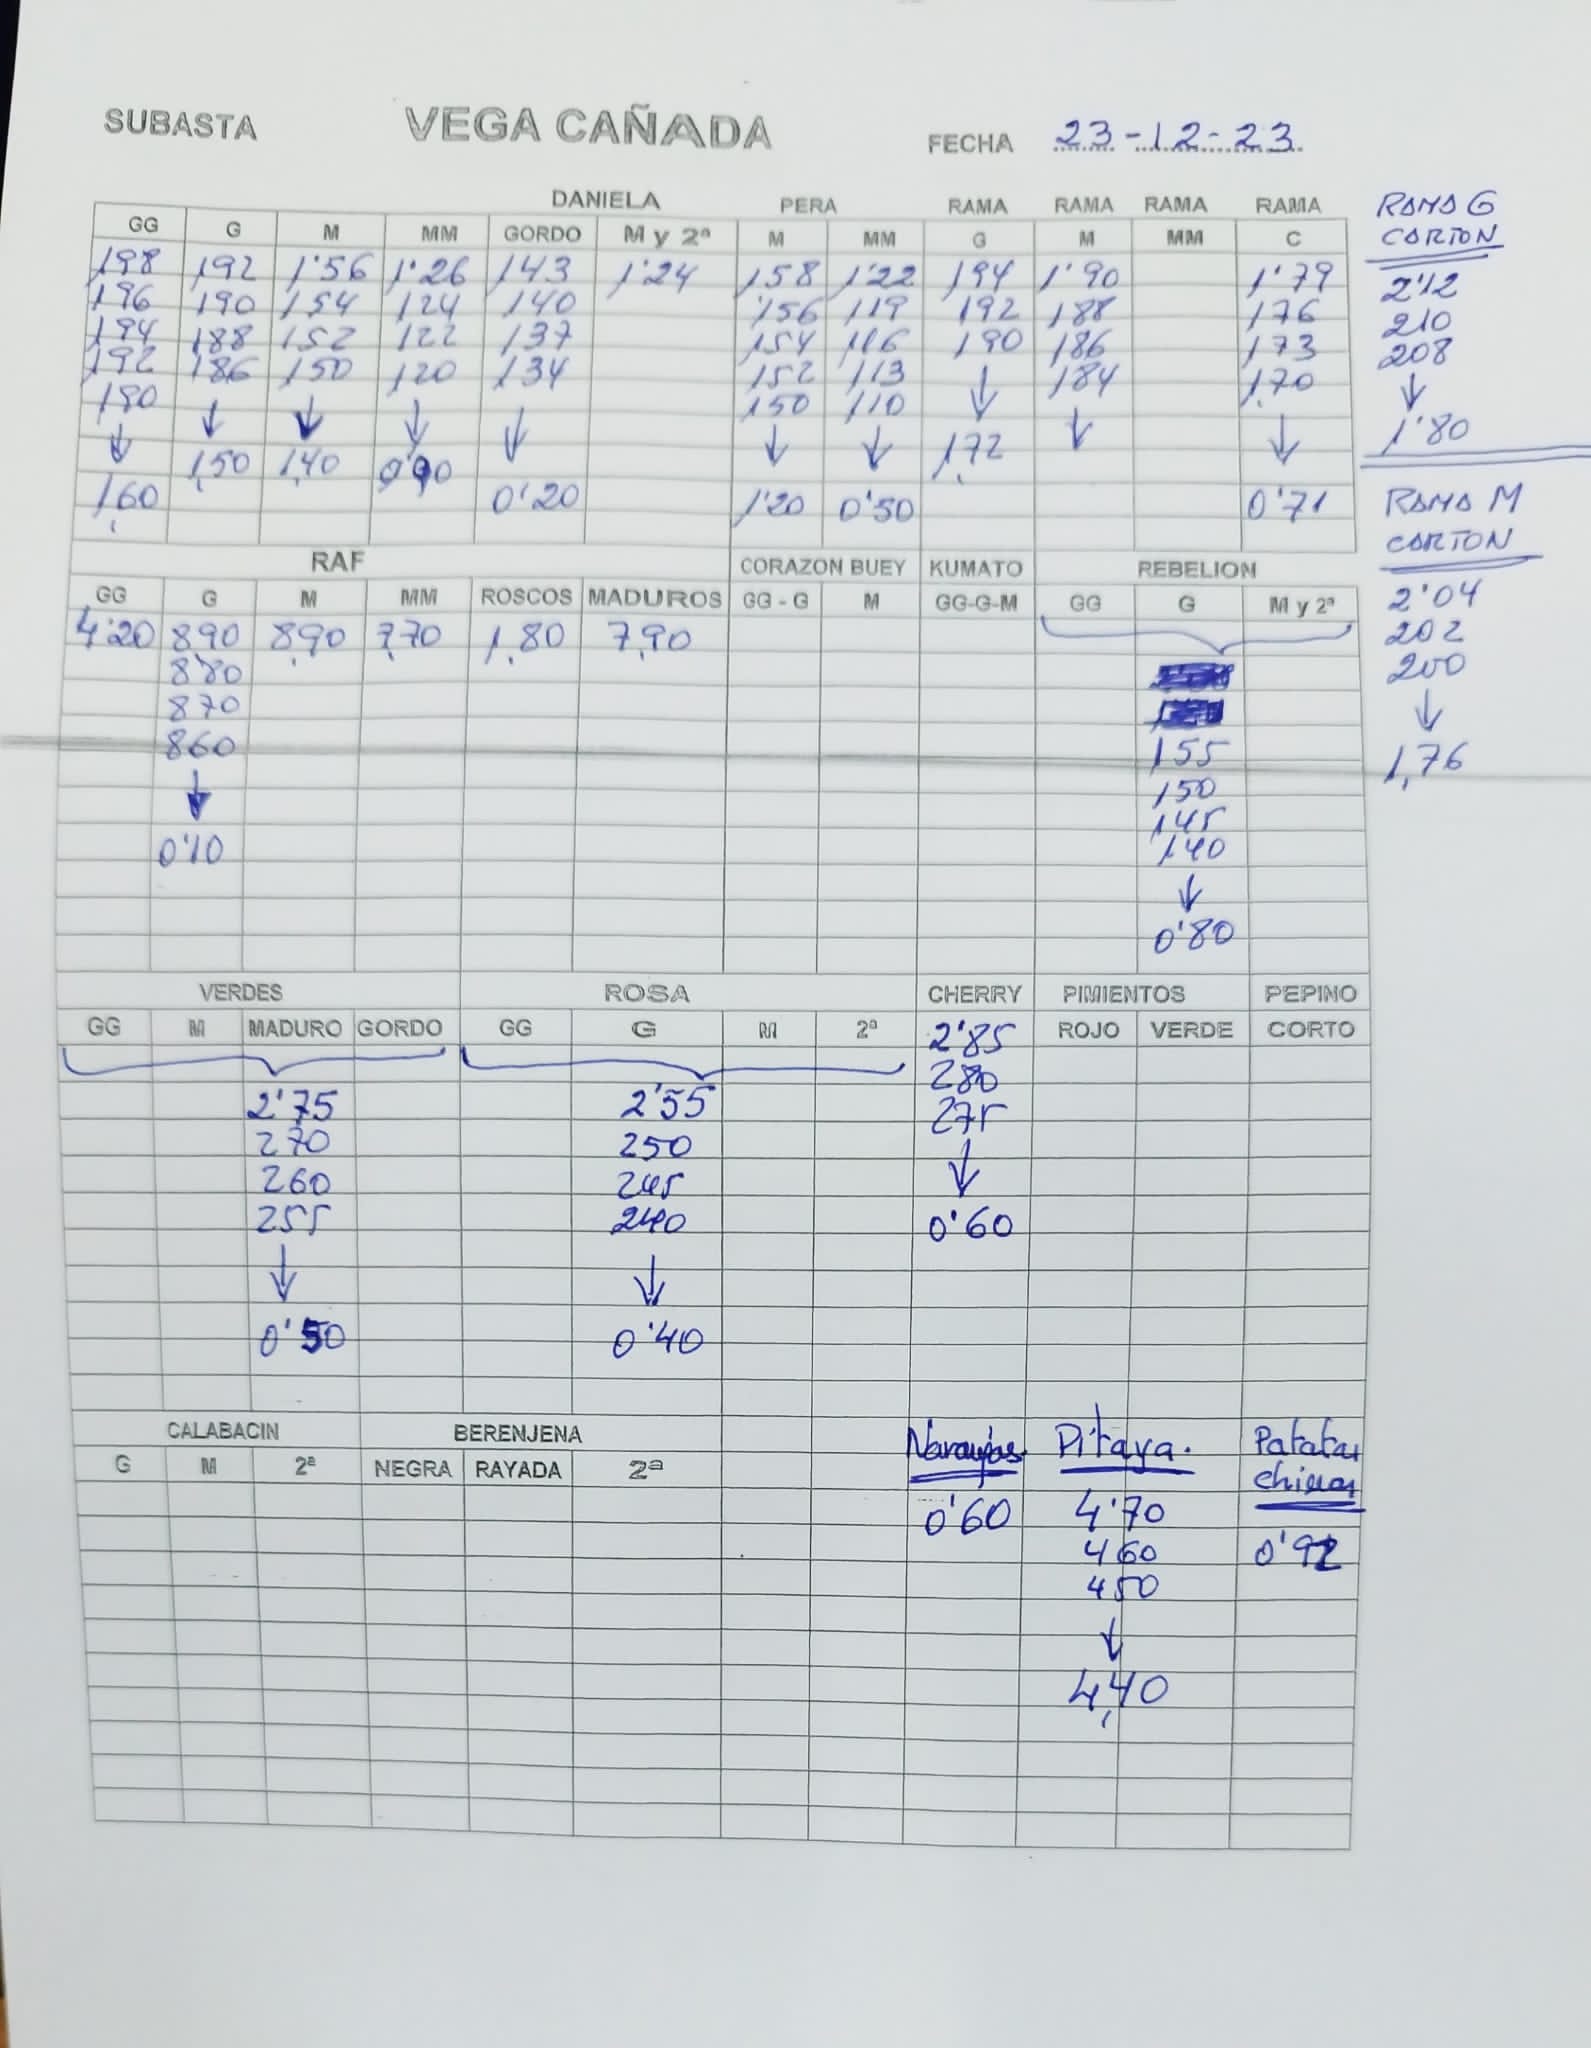 SUBASTA VEGA CAÑADA FECHA 23-12-23
DANIELA PERA RAMA RAMA RAMA RAMA RAMA G
GG G M MM GORDO M y 2ª M MM G M MM C CARTON
198 192 1'56 1'26 143 1'24 158 1'22 194 1'90 1'79 2'12
196 190 154 124 140 156 119 192 188 176 210
194 188 152 122 137 154 116 190 186 173 208
192 186 150 120 134 152 113 ↓ 184 1,70 ↓
180 ↓ ↓ ↓ ↓ 150 110 1,72 ↓ ↓ 1'80
↓ 1,50 1,40 ↓ ↓
1,60 0'20 1'20 0'50 0'71 RAMA M
RAF CORAZON BUEY KUMATO REBELION CARTON
GG G M MM ROSCOS MADUROS GG - G M GG-G-M GG G M y 2ª 2'04
4'20 890 8,90 7,70 1,80 7,90 202
8'80 200
870 ↓
860 155 1,76
↓ 150
145
0'10 140
↓
0'80
VERDES ROSA CHERRY PIMIENTOS PEPINO
GG M MADURO GORDO GG G M 2ª 2'85 ROJO VERDE CORTO
280
2'75 2'55 275
270 250 ↓
260 245
255 240 0'60
↓ ↓
0'50 0'40
CALABACIN BERENJENA Naranjas Pitaya. Patatas
G M 2ª NEGRA RAYADA 2ª chicas
0'60 4'70
460 0'92
450
↓
4,40